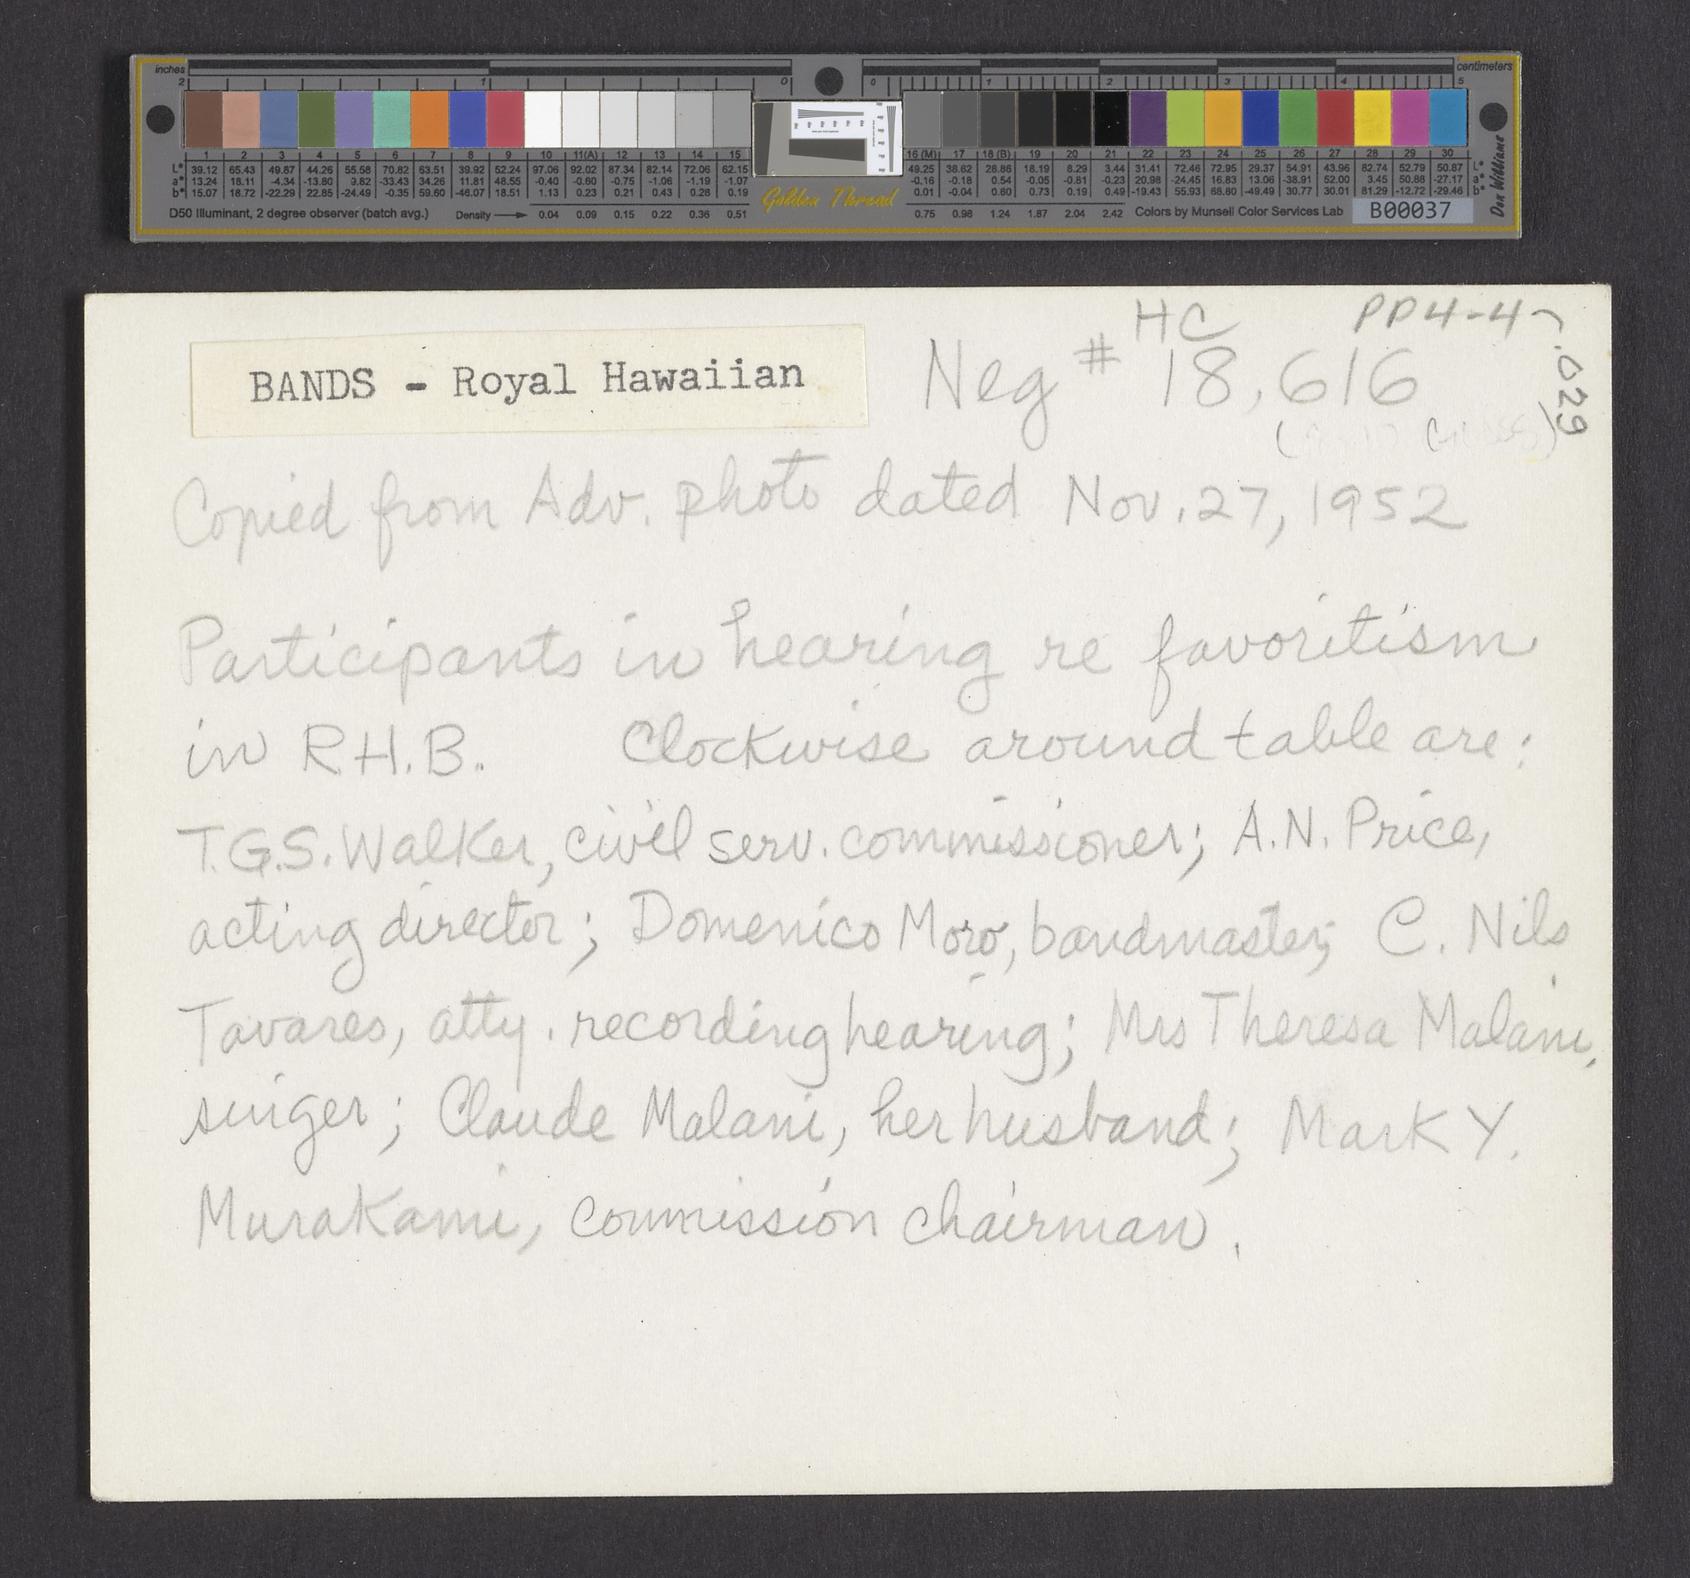 inches
centimeters
2 1 0 0 1 2 3 4 5
1 2 3 4 5 6 7 8 9 10 11(A) 12 13 14 15 16 (M) 17 18 (B) 19 20 21 22 23 24 25 26 27 28 29 30
L* 39.12 65.43 49.87 44.26 55.58 70.82 63.51 39.92 52.24 97.06 92.02 87.34 82.14 72.06 62.15 49.25 38.62 28.86 18.19 8.29 3.44 31.41 72.46 72.95 29.37 54.91 43.96 82.74 52.79 50.87 L*
a* 13.24 18.11 -4.34 -13.80 9.82 -33.43 34.26 11.81 48.55 -0.40 -0.60 -0.75 -1.06 -1.19 -1.07 -0.16 -0.18 0.54 -0.05 -0.81 -0.23 20.98 -24.45 16.83 13.06 -38.91 52.00 3.45 50.88 -27.17 a*
b* 15.07 18.72 -22.29 22.85 -24.49 -0.35 59.60 -46.07 18.51 1.13 0.23 0.21 0.43 0.28 0.19 0.01 -0.04 0.60 0.73 0.19 0.49 -19.43 55.93 68.80 -49.49 30.77 30.01 81.29 -12.72 -29.46 b*
D50 Illuminant, 2 degree observer (batch avg.) Density 0.04 0.09 0.15 0.22 0.36 0.51 Golden Thread 0.75 0.98 1.24 1.87 2.04 2.42 Colors by Munsell Color Services Lab B00037
Don Williams
HC PP4-4-
.029
BANDS - Royal Hawaiian Neg # 18,616
Copied from Adv. photo dated Nov. 27, 1952
Participants in hearing re favoritism
in R.H.B. Clockwise around table are:
T.G.S. Walker, civil serv. commissioner; A.N. Price,
acting director; Domenico Moro, bandmaster; C. Nils
Tavares, atty. recording hearing; Mrs Theresa Malani,
singer; Claude Malani, her husband; Mark Y.
Murakami, commission chairman.